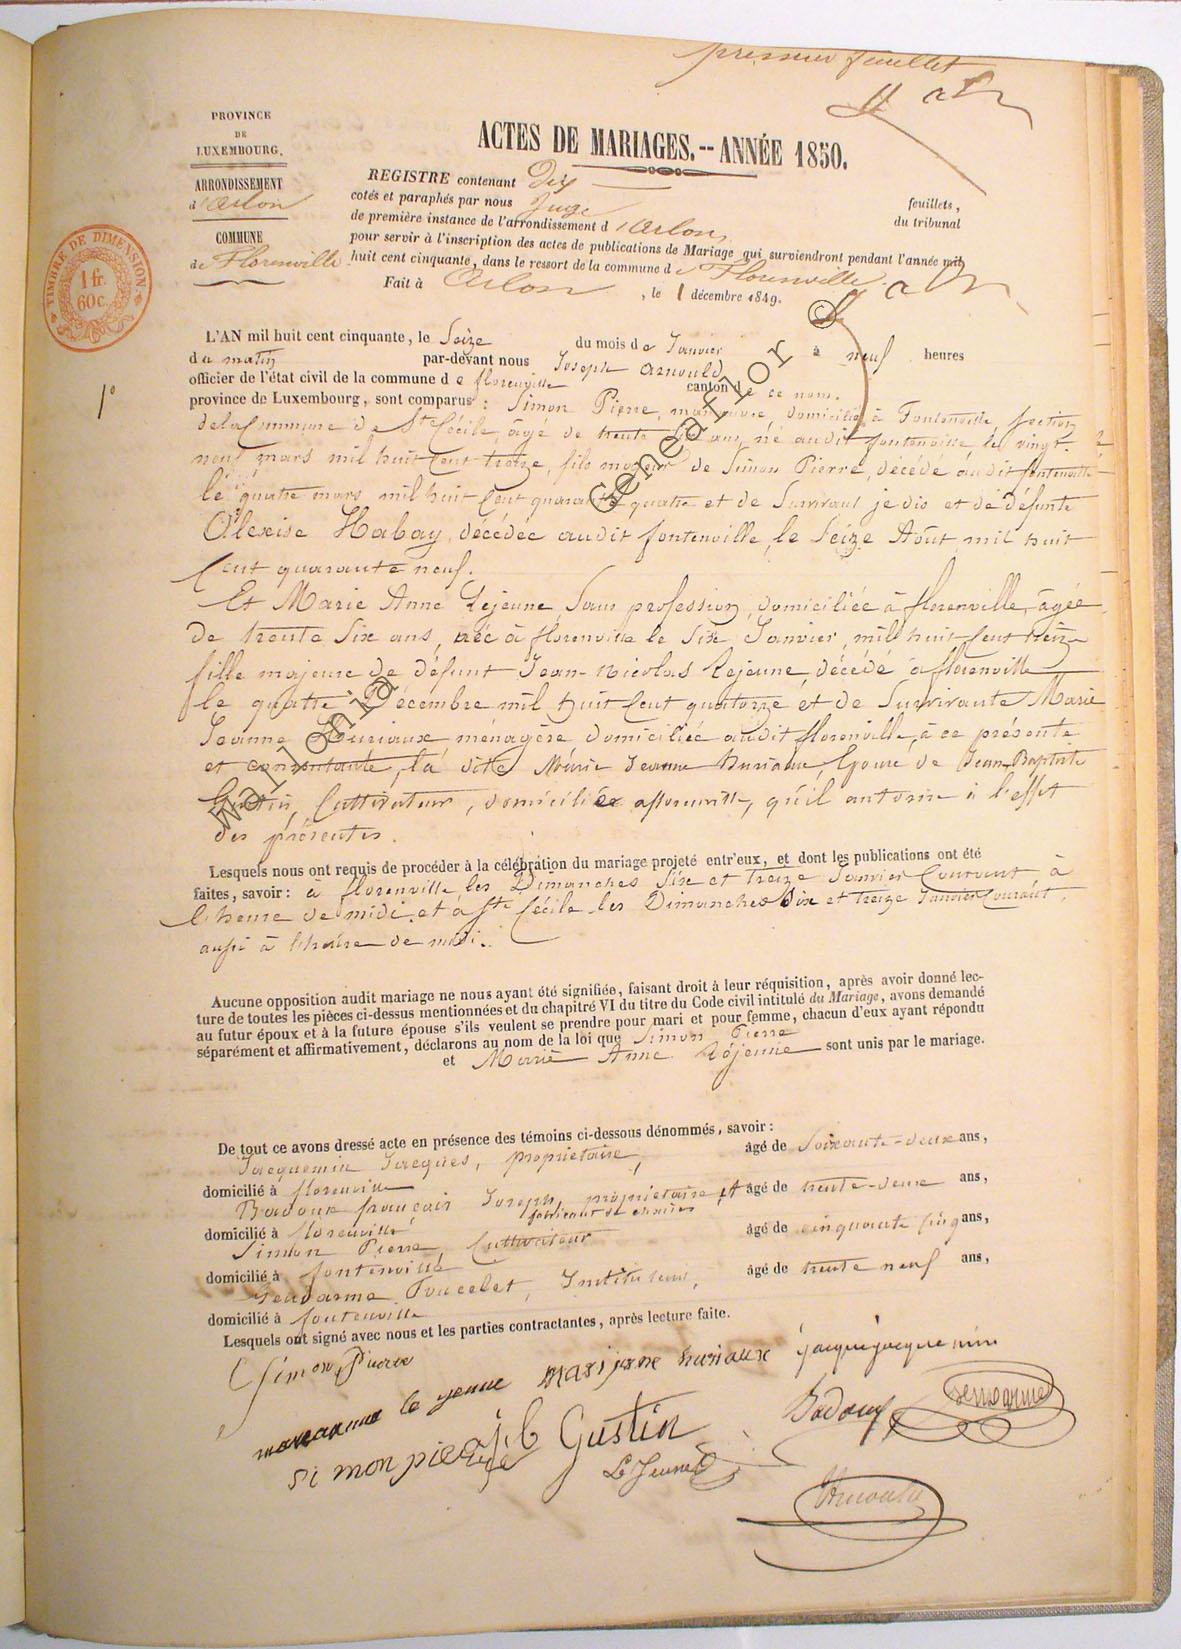 premier feuillet
PROVINCE
DE
LUXEMBOURG.
ARRONDISSEMENT
d'Arlon
COMMUNE
de Florenville
TIMBRE DE DIMENSION
1 fr.
60 c.
ACTES DE MARIAGES.-- ANNÉE 1850.
REGISTRE contenant Dix feuillets,
cotés et paraphés par nous Juge du tribunal
de première instance de l'arrondissement d'Arlon,
pour servir à l'inscription des actes de publications de Mariage qui surviendront pendant l'année mil
huit cent cinquante, dans le ressort de la commune de Florenville.
Fait à Arlon, le 1 décembre 1849.
1°
L'AN mil huit cent cinquante, le Seize du mois de Janvier à neuf heures
du matin par-devant nous Joseph Arnould
officier de l'état civil de la commune de florenville canton de ce nom.
province de Luxembourg, sont comparus : Simon Pierre, manœuvre, domicilié à Fontenoille, section
de la Commune de Ste Cécile, âgé de trente six ans, né audit fontenoille le vingt-
neuf mars mil huit Cent treize, fils majeur de Simon Pierre, décédé audit fontenoille
le quatre mars mil huit Cent quarante quatre et de Survivant je dis et de défunte
Alexise Habay, décédée audit fontenoille, le Seize Août mil huit
Cent quarante neuf.
Et Marie Anne Lejeune, Sans profession, domiciliée à florenville, âgée
de trente Six ans, née à florenville le Six Janvier mil huit Cent treize
fille majeure de défunt Jean-Nicolas Lejeune, décédé à florenville
le quatre Décembre mil huit Cent quatorze et de Survivante Marie
Jeanne Huriaux ménagère domiciliée audit florenville, à ce présente
et consentante, la dite Marie Jeanne Huriaux, Epouse de Jean-Baptiste
Gustin, Cultivateur, domicilié à florenville, qu'il autorise à l'effet
des présentes.
Lesquels nous ont requis de procéder à la célébration du mariage projeté entr'eux, et dont les publications ont été
faites, savoir : à florenville les Dimanches Six et treize Janvier Courant, à
l'heure de midi et à Ste Cécile les Dimanches Six et treize Janvier Courant,
aussi à l'heure de midi.
Aucune opposition audit mariage ne nous ayant été signifiée, faisant droit à leur réquisition, après avoir donné lec-
ture de toutes les pièces ci-dessus mentionnées et du chapitre VI du titre du Code civil intitulé du Mariage, avons demandé
au futur époux et à la future épouse s'ils veulent se prendre pour mari et pour femme, chacun d'eux ayant répondu
séparément et affirmativement, déclarons au nom de la loi que Simon Pierre
et Marie Anne Lejeune sont unis par le mariage.
De tout ce avons dressé acte en présence des témoins ci-dessous dénommés, savoir :
Jacquemin Jacques, propriétaire, âgé de Soixante-deux ans,
domicilié à florenville
Badoux françois Joseph, propriétaire et âgé de trente-deux ans,
fabricant de chaises
domicilié à florenville
Simon Pierre, Cultivateur âgé de cinquante cinq ans,
domicilié à fontenoille
Gendarme Poncelet, Instituteur, âgé de trente neuf ans,
domicilié à fontenoille
Lesquels ont signé avec nous et les parties contractantes, après lecture faite.
Simon Pierre
mariejene huriaux
jacque jacque min
marianne le jenne
Badoux
Gendarme
simon piere
j b Gustin
LeJeune
Arnould
wallonia
GeneaFlor ©